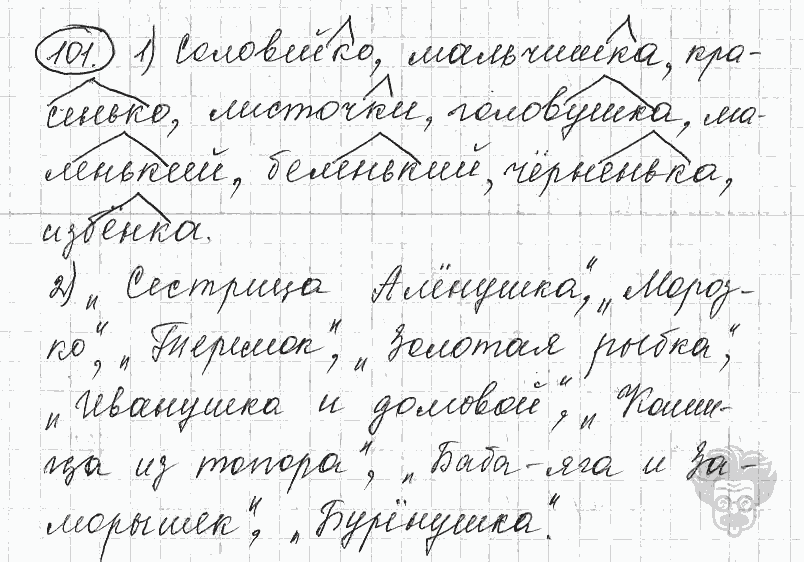 101. 1) Соловейко, мальчишка, кра-
сенько, листочки, головушка, ма-
ленький, беленький, чёрненька,
избёнка.
2) „Сестрица Алёнушка", „Мороз-
ко", „Теремок", „Золотая рыбка",
„Иванушка и домовой", „Каши-
ца из топора", „Баба-яга и За-
морышек", „Бурёнушка".